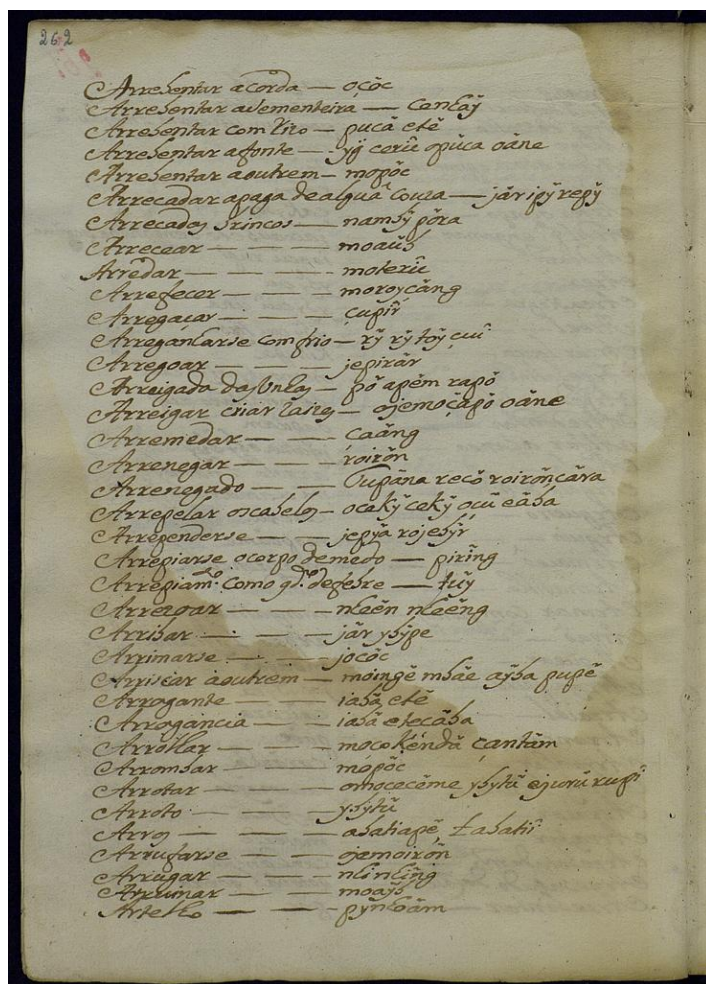 262
Arrebentar a corda — oçŏc
Arrebentar a sementeira — cenhaỹ
Arrebentar com riso — pucă etĕ
Arrebentar a fonte — yg̃ cerũ opŭca oăne
Arrebentar a outrem — mopŏc
Arrecadar a paga de alguã couza — jăr ipỹ repỹ
Arrecadas brincos — nambỹ pŏra
Arrecear — — — moaŭb
Arredar — — — moterĩ
Arrefecer — — — moroyçăng
Arregaçar — — — çupĩr
Arreganharse com frio — rỹ rỹ roỹ çuí
Arregoar — — — jepirăr
Arreigada das Unhas — pŏ apĕm rapŏ
Arreigar criar raizes — ojemoçapŏ oăne
Arremedar — — — caăng
Arrenegar — — — roirŏn
Arrenegado — — — Tupăna recŏ roirŏnçăra
Arrepelar os cabelos — ocekỹ cekỹ ocŭ eăba
Arrependerse — — — jepỹa rojebỹr
Arrepiarse o corpo de medo — pirĩng
Arrepiamto. como qdo. de febre — tŭy
Arrezoar — — — nheĕn nheĕng
Arribar — — — jăr ybỹpe
Arrimarse — — — jocŏc
Arriscar a outrem — moingĕ mbăe aỹba pupĕ
Arrogante — — — iabă etĕ
Arrogancia — — — iabă etecăba
Arrolhar — — — mocokĕndă çantăm
Arrombar — — — mopŏc
Arrotar — — — omocecĕme ybytŭ ejurŭ rupí
Arroto — — — ybytŭ
Arros — — — abatiapĕ, t abatií
Arrufarse — — — ojemoirŏn
Arrugar — — — nhinhĩng
Arruinar — — — moaỹb
Artelho — — — pỹnhoăm